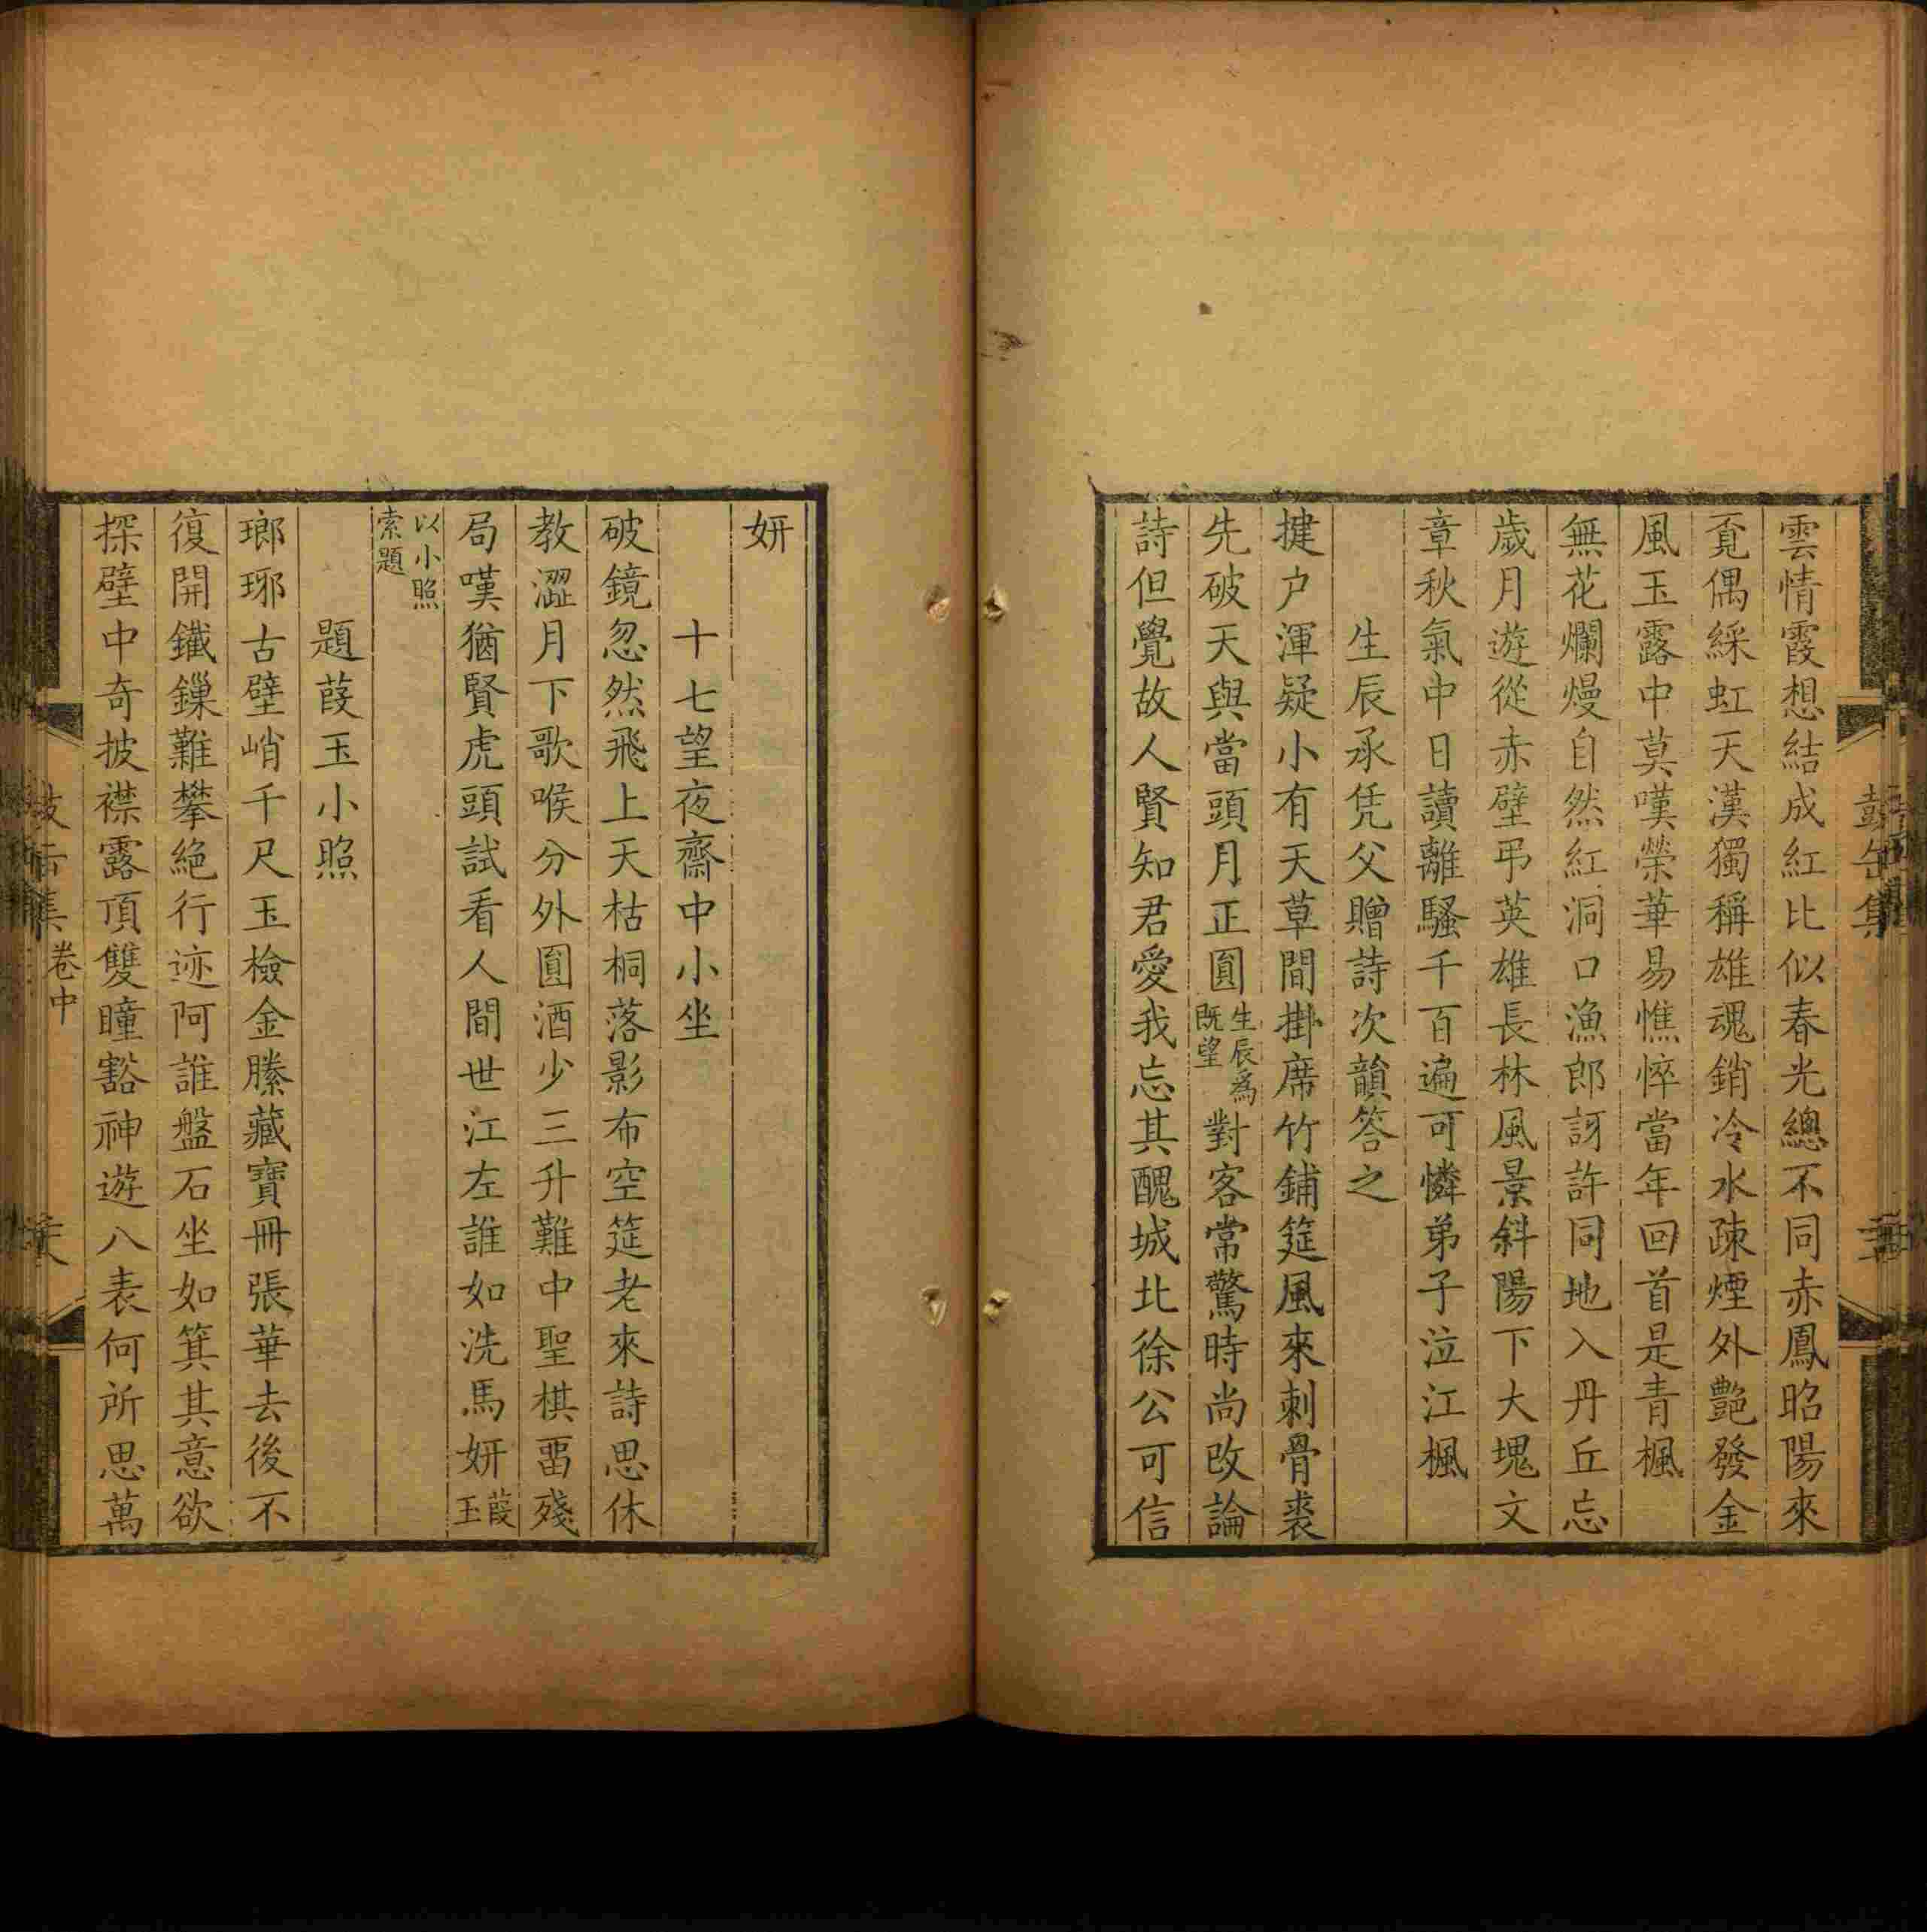 雲情霞想結成紅比似春光總不同赤鳳昭陽來
覓偶綵虹天漢獨稱雄魂銷冷水疎煙外艷發金
風玉露中莫嘆榮華易憔悴當年回首是青楓
無花爛熳自然紅洞口漁郎訝許同地入丹丘忘
歲月遊從赤壁弔英雄長林風景斜陽下大塊文
章秋氣中日讀離騷千百遍可憐弟子泣江楓
生辰承凭父贈詩次韻答之
揵户渾疑小有天草間掛席竹鋪筵風來刺骨裘
先破天與當頭月正圓生辰為既望對客常驚時尚改論
詩但覺故人賢知君愛我忘其醜城北徐公可信
妍
十七望夜齋中小坐
破鏡忽然飛上天枯桐落影布空筵老來詩思休
教澀月下歌喉分外圓酒少三升難中聖棋畱殘
局嘆猶賢虎頭試看人間世江左誰如洗馬妍葭玉
以小照索題
題葭玉小照
瑯琊古壁峭千尺玉檢金縢藏寶冊張華去後不
復開鐵鏁難攀絕行迹阿誰盤石坐如箕其意欲
探壁中奇披襟露頂雙瞳豁神遊八表何所思萬
卷中